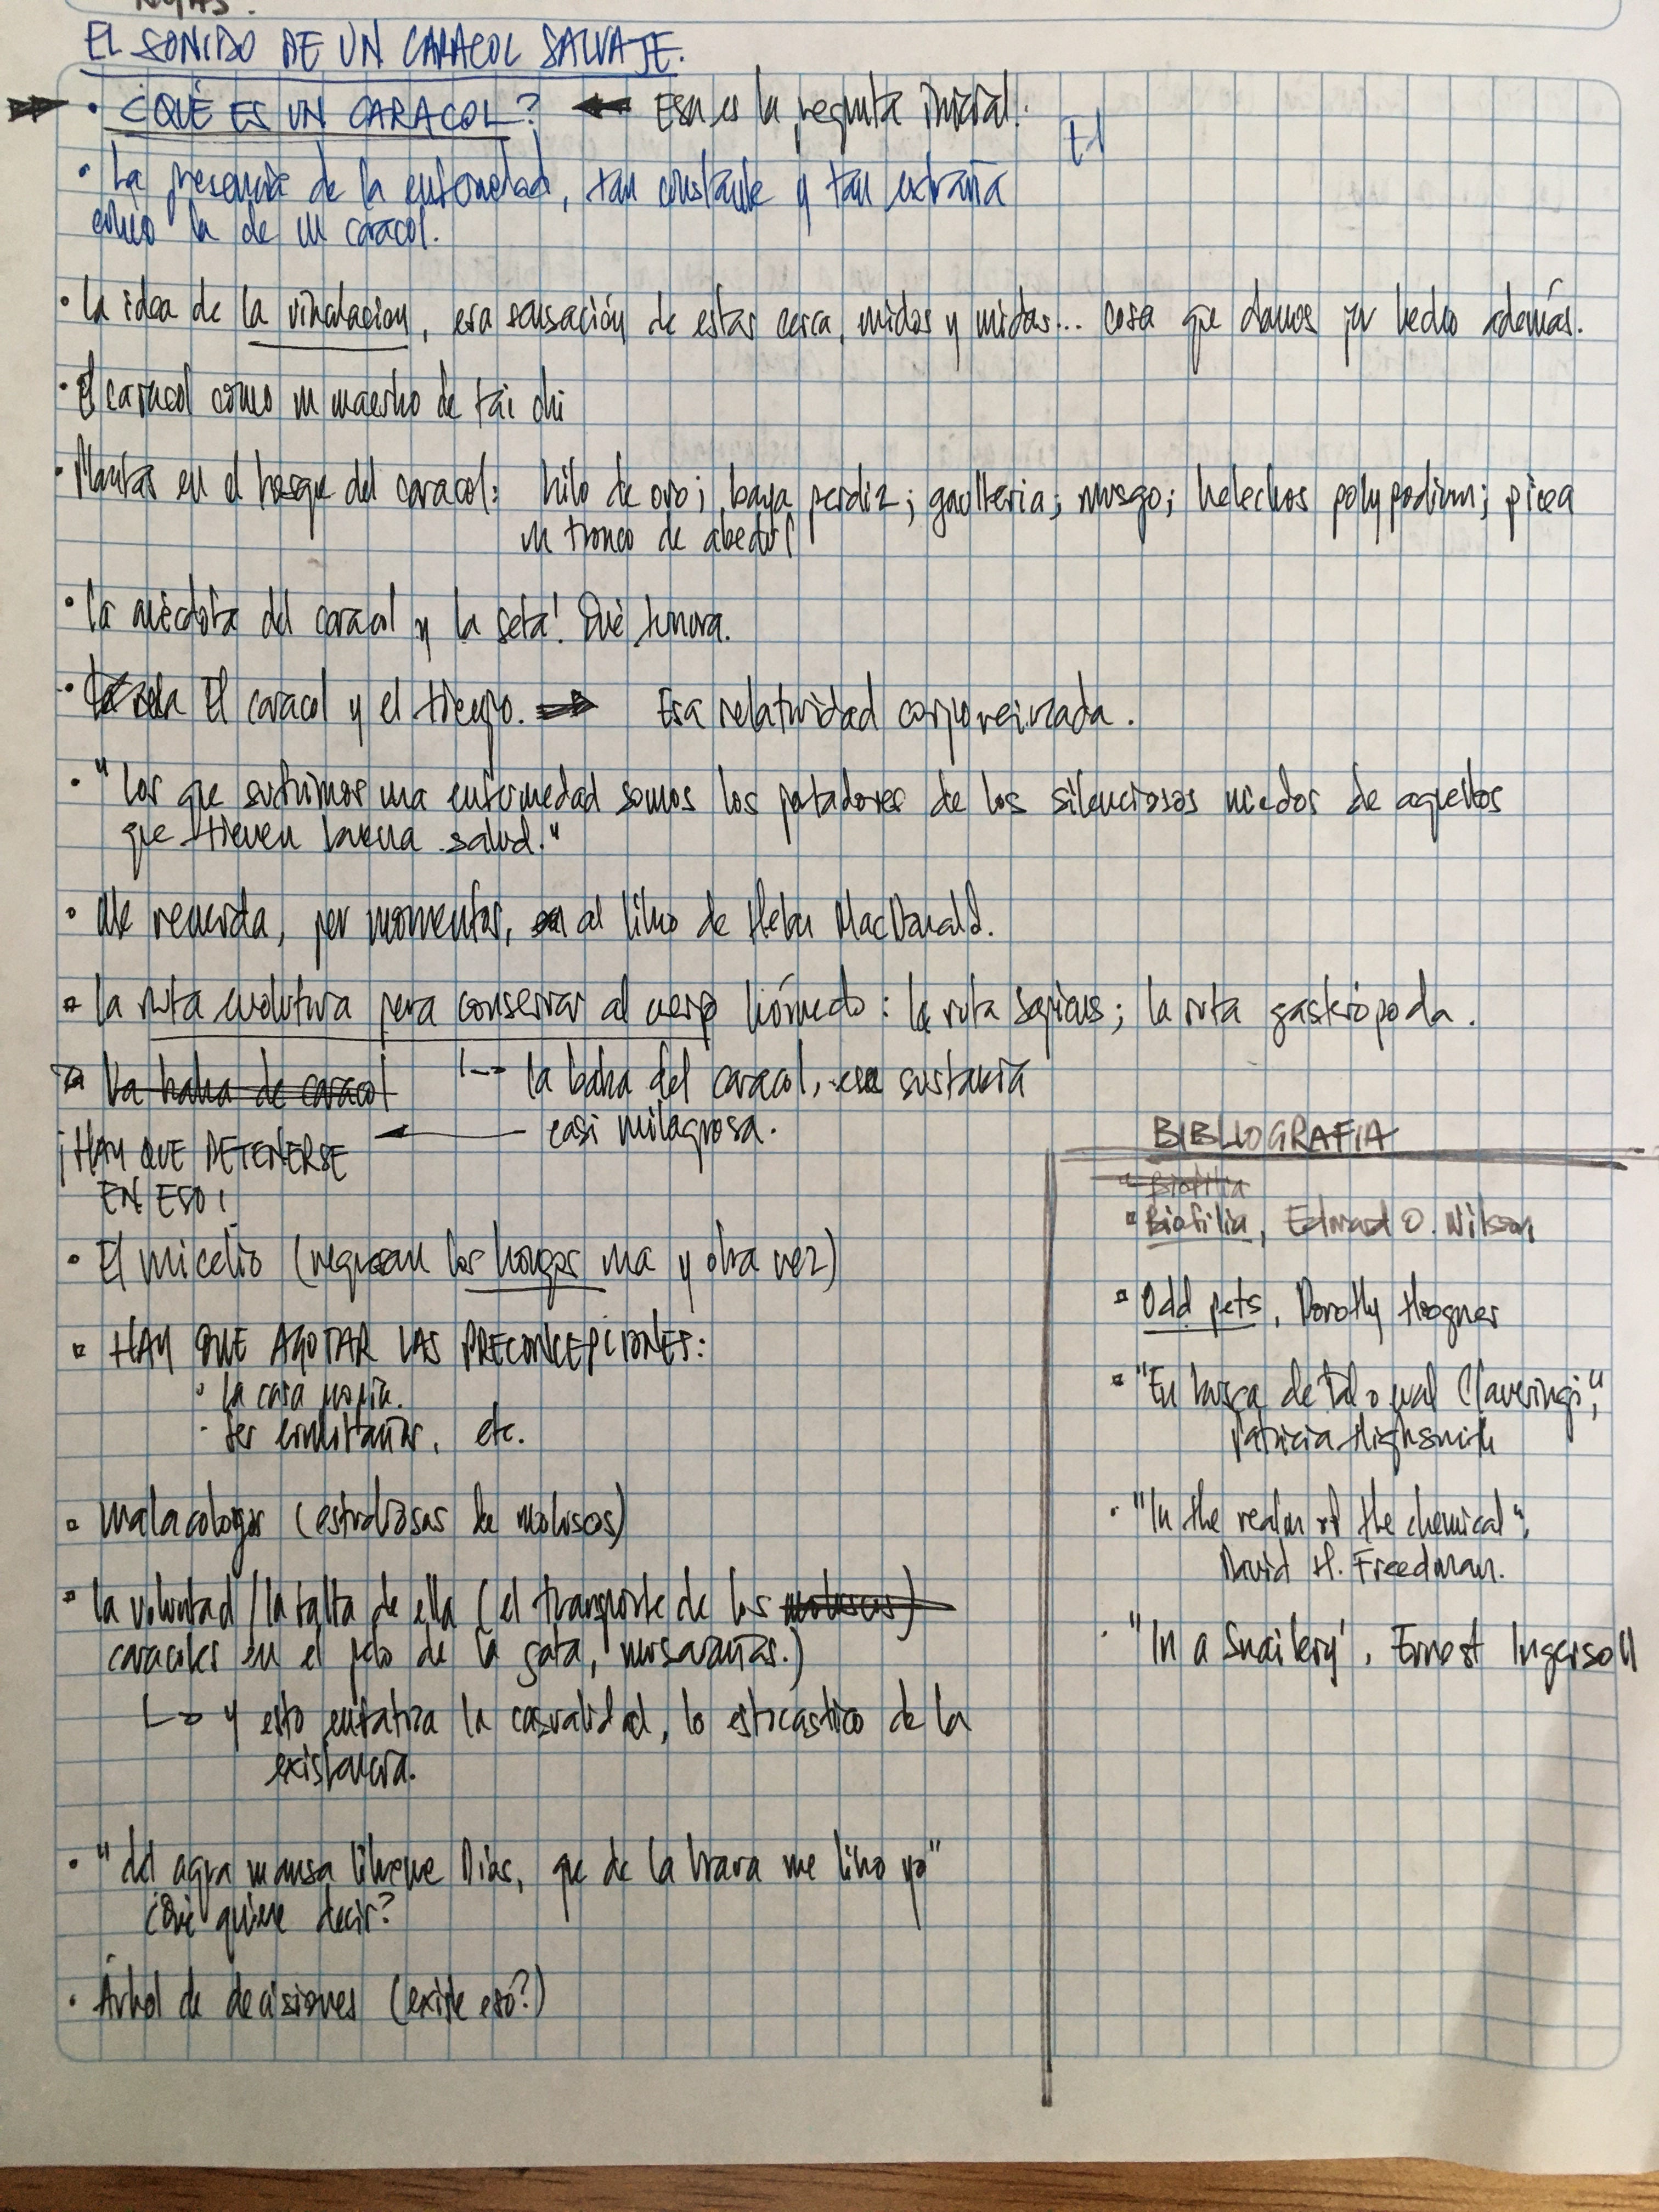 EL SONIDO DE UN CARACOL SALVAJE.
• ¿QUÉ ES UN CARACOL? Esa es la pregunta inicial.
• La presencia de la enfermedad, tan constante y tan extraña
como la de un caracol.
• La idea de la vinculacion, esa sensación de estar cerca, unidos y unidas... cosa que damos por hecho además.
• El caracol como un maestro de tai chi
• Plantas en el bosque del caracol: hilo de oro; baya perdiz; gaulteria; musgo; helechos polypodium; picea
un tronco de abedul
• La anécdota del caracol y la seta! Qué ternura.
• El caracol y el tiempo. Esa relatividad corporeizada.
• "Los que sufrimos una enfermedad somos los portadores de los silenciosos miedos de aquellos
que tienen buena salud."
• Me recuerda, por momentos, al libro de Helen MacDonald.
▫ La ruta evolutiva para conservar al cuerpo húmedo: la ruta sapiens; la ruta gastrópoda.
▫ La baba de caracol ↳ la baba del caracol, esa sustancia
casi milagrosa.
¡HAY QUE DETENERSE
EN ESO!
• El micelio (regresan los hongos una y otra vez)
▫ HAY QUE AGOTAR LAS PRECONCEPCIONES:
• La casa propia.
• Ser ermitaños, etc.
▫ Malacologos (estudiosas de moluscos)
▫ La voluntad / la falta de ella (el transporte de los moluscos)
caracoles en el pelo de la gata, musarañas.)
↳ y esto enfatiza la casualidad, lo estocástico de la
existencia.
• "del agua mansa libreme Dios, que de la brava me libro yo"
¿Qué quiere decir?
• Árbol de decisiones (existe eso?)
BIBLIOGRAFIA
▫ Biofilia
▫ Biofilia, Edward O. Wilson
▫ Odd pets, Dorothy Hogner
▫ "En busca de tal o cual Claveringi",
Patricia Highsmith
• "In the realm of the chemical",
David H. Freedman.
• "In a Snailery", Ernest Ingersoll